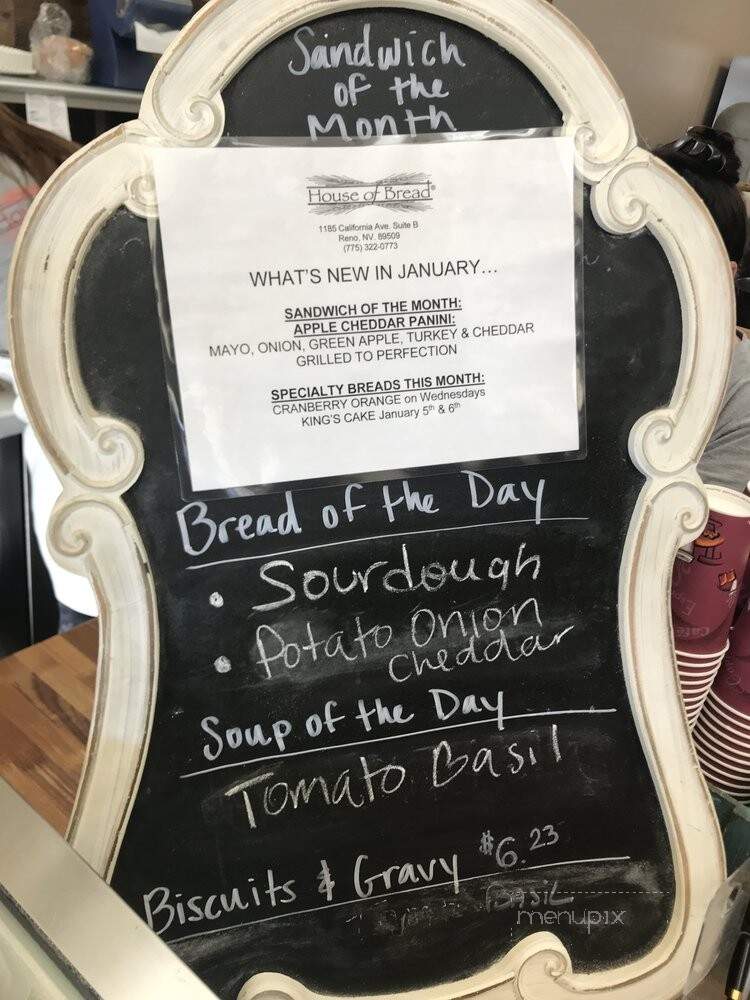 Sandwich
of the
Month
House of Bread®
1185 California Ave. Suite B
Reno, NV. 89509
(775) 322-0773
WHAT'S NEW IN JANUARY...
SANDWICH OF THE MONTH:
APPLE CHEDDAR PANINI:
MAYO, ONION, GREEN APPLE, TURKEY & CHEDDAR
GRILLED TO PERFECTION
SPECIALTY BREADS THIS MONTH:
CRANBERRY ORANGE on Wednesdays
KING'S CAKE January 5th & 6th
Bread of the Day
• Sourdough
• Potato Onion
cheddar
Soup of the Day
Tomato Basil
Biscuits & Gravy $6.23
Basil
menupix